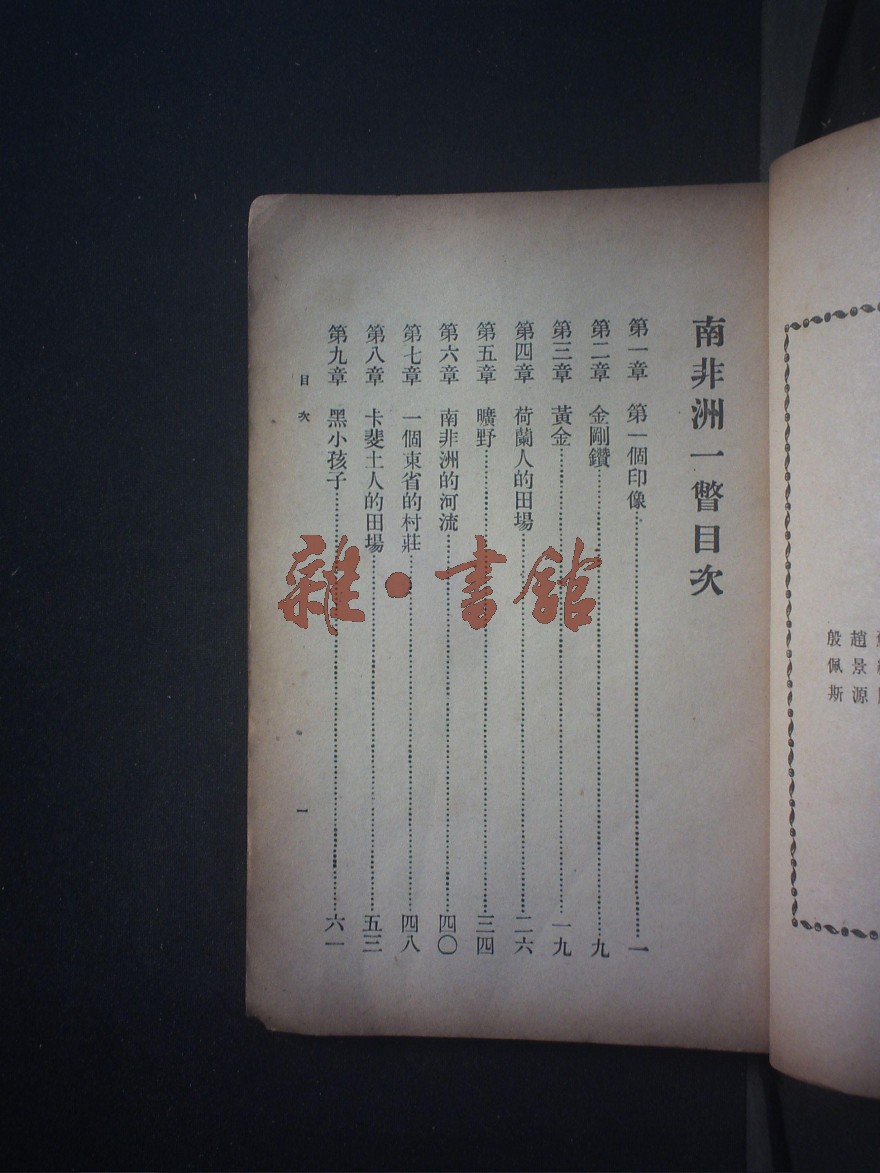 南非洲一瞥目次
第一章 第一個印像……一
第二章 金剛鑽……九
第三章 黃金……一九
第四章 荷蘭人的田場……二六
第五章 曠野……三四
第六章 南非洲的河流……四〇
第七章 一個東省的村莊……四八
第八章 卡斐土人的田場……五三
第九章 黑小孩子……六一
目次
一
趙景源
殷佩斯
雜·書館